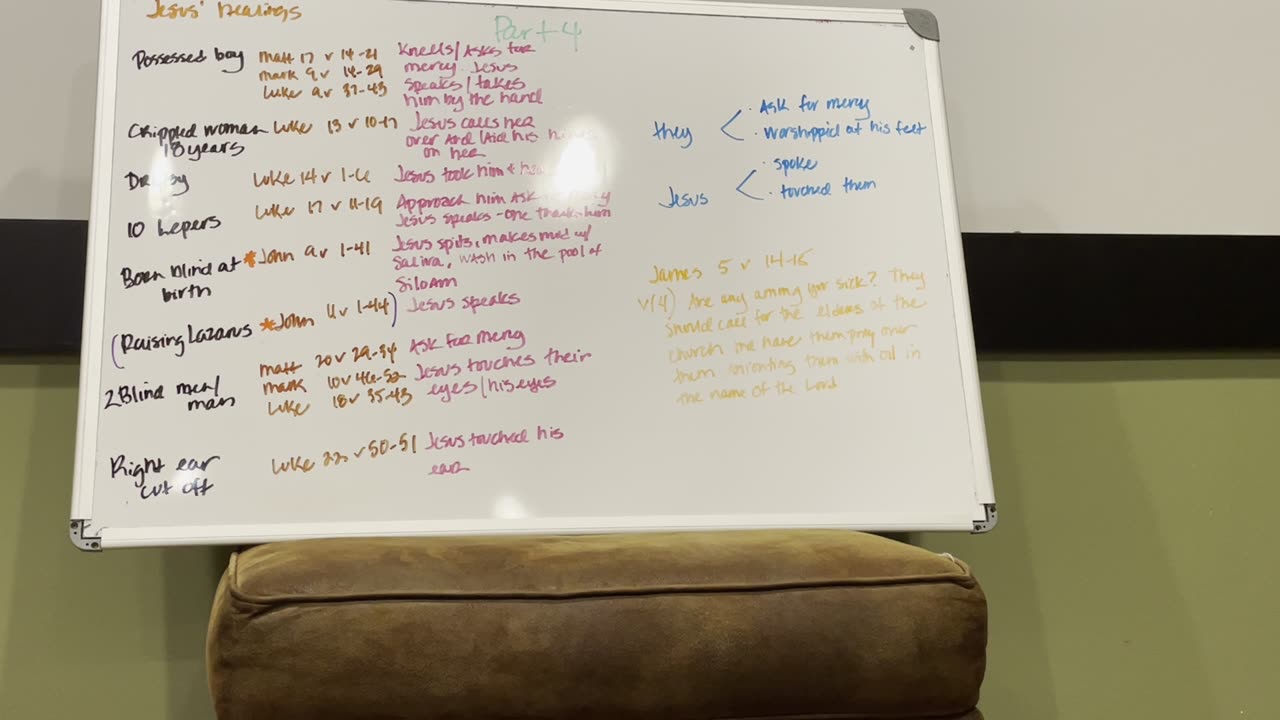 Jesus' healings
Part 4
Possessed boy
Matt 17 v 14-21
Mark 9 v 14-29
Luke 9v 37-43
Kneels/Asks for
mercy. Jesus
speaks/takes
him by the hand
Crippled woman
18 years
Luke 13 v 10-17
Jesus calls her
over and laid his
on her
Luke 14 v 1-6
Jesus took him &
10 Lepers
Luke 17 v 11-19
Approach him Ask
Jesus speaks - one thank him
Born blind at
birth
*John 9v 1-41
Jesus spits, makes mud w/
Saliva, wash in the pool of
Siloam
(Raising Lazarus *John 11 v 1-44)
Jesus speaks
2 Blind men/
man
Matt 20 v 29-34
Mark 10 v 46-52
Luke 18 v 35-43
Ask for mercy
Jesus touches their
eyes/his eyes
Right ear
cut off
Luke 22 v 50-51
Jesus touched his
ear
they
· Ask for mercy
· Worshippid at his feet
Jesus
· spoke
· touched them
James 5 v 14-15
Are any among your sick? They
should call for the elders of the
church have them pray over
them with oil in
the name of the Lord